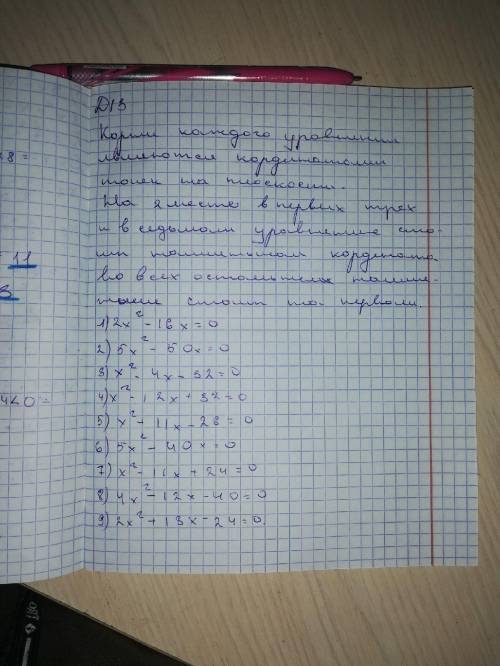 Д/З
Корни каждого уровнения
являются кординатоми
точек на плоскости.
На 2 месте в первых трех
и в седьмом уровнение сто-
ит
кордината
во всех остальных
стоит на первом.
1) 2x² - 16x = 0
2) 5x² - 50x = 0
3) x² - 4x - 32 = 0
4) x² - 12x + 32 = 0
5) x² + 11x - 26 = 0
6) 5x² - 40x = 0
7) x² - 11x + 24 = 0
8) 4x² - 12x - 40 = 0
9) 2x² + 13x - 24 = 0.
8 =
11
3
4<0 =